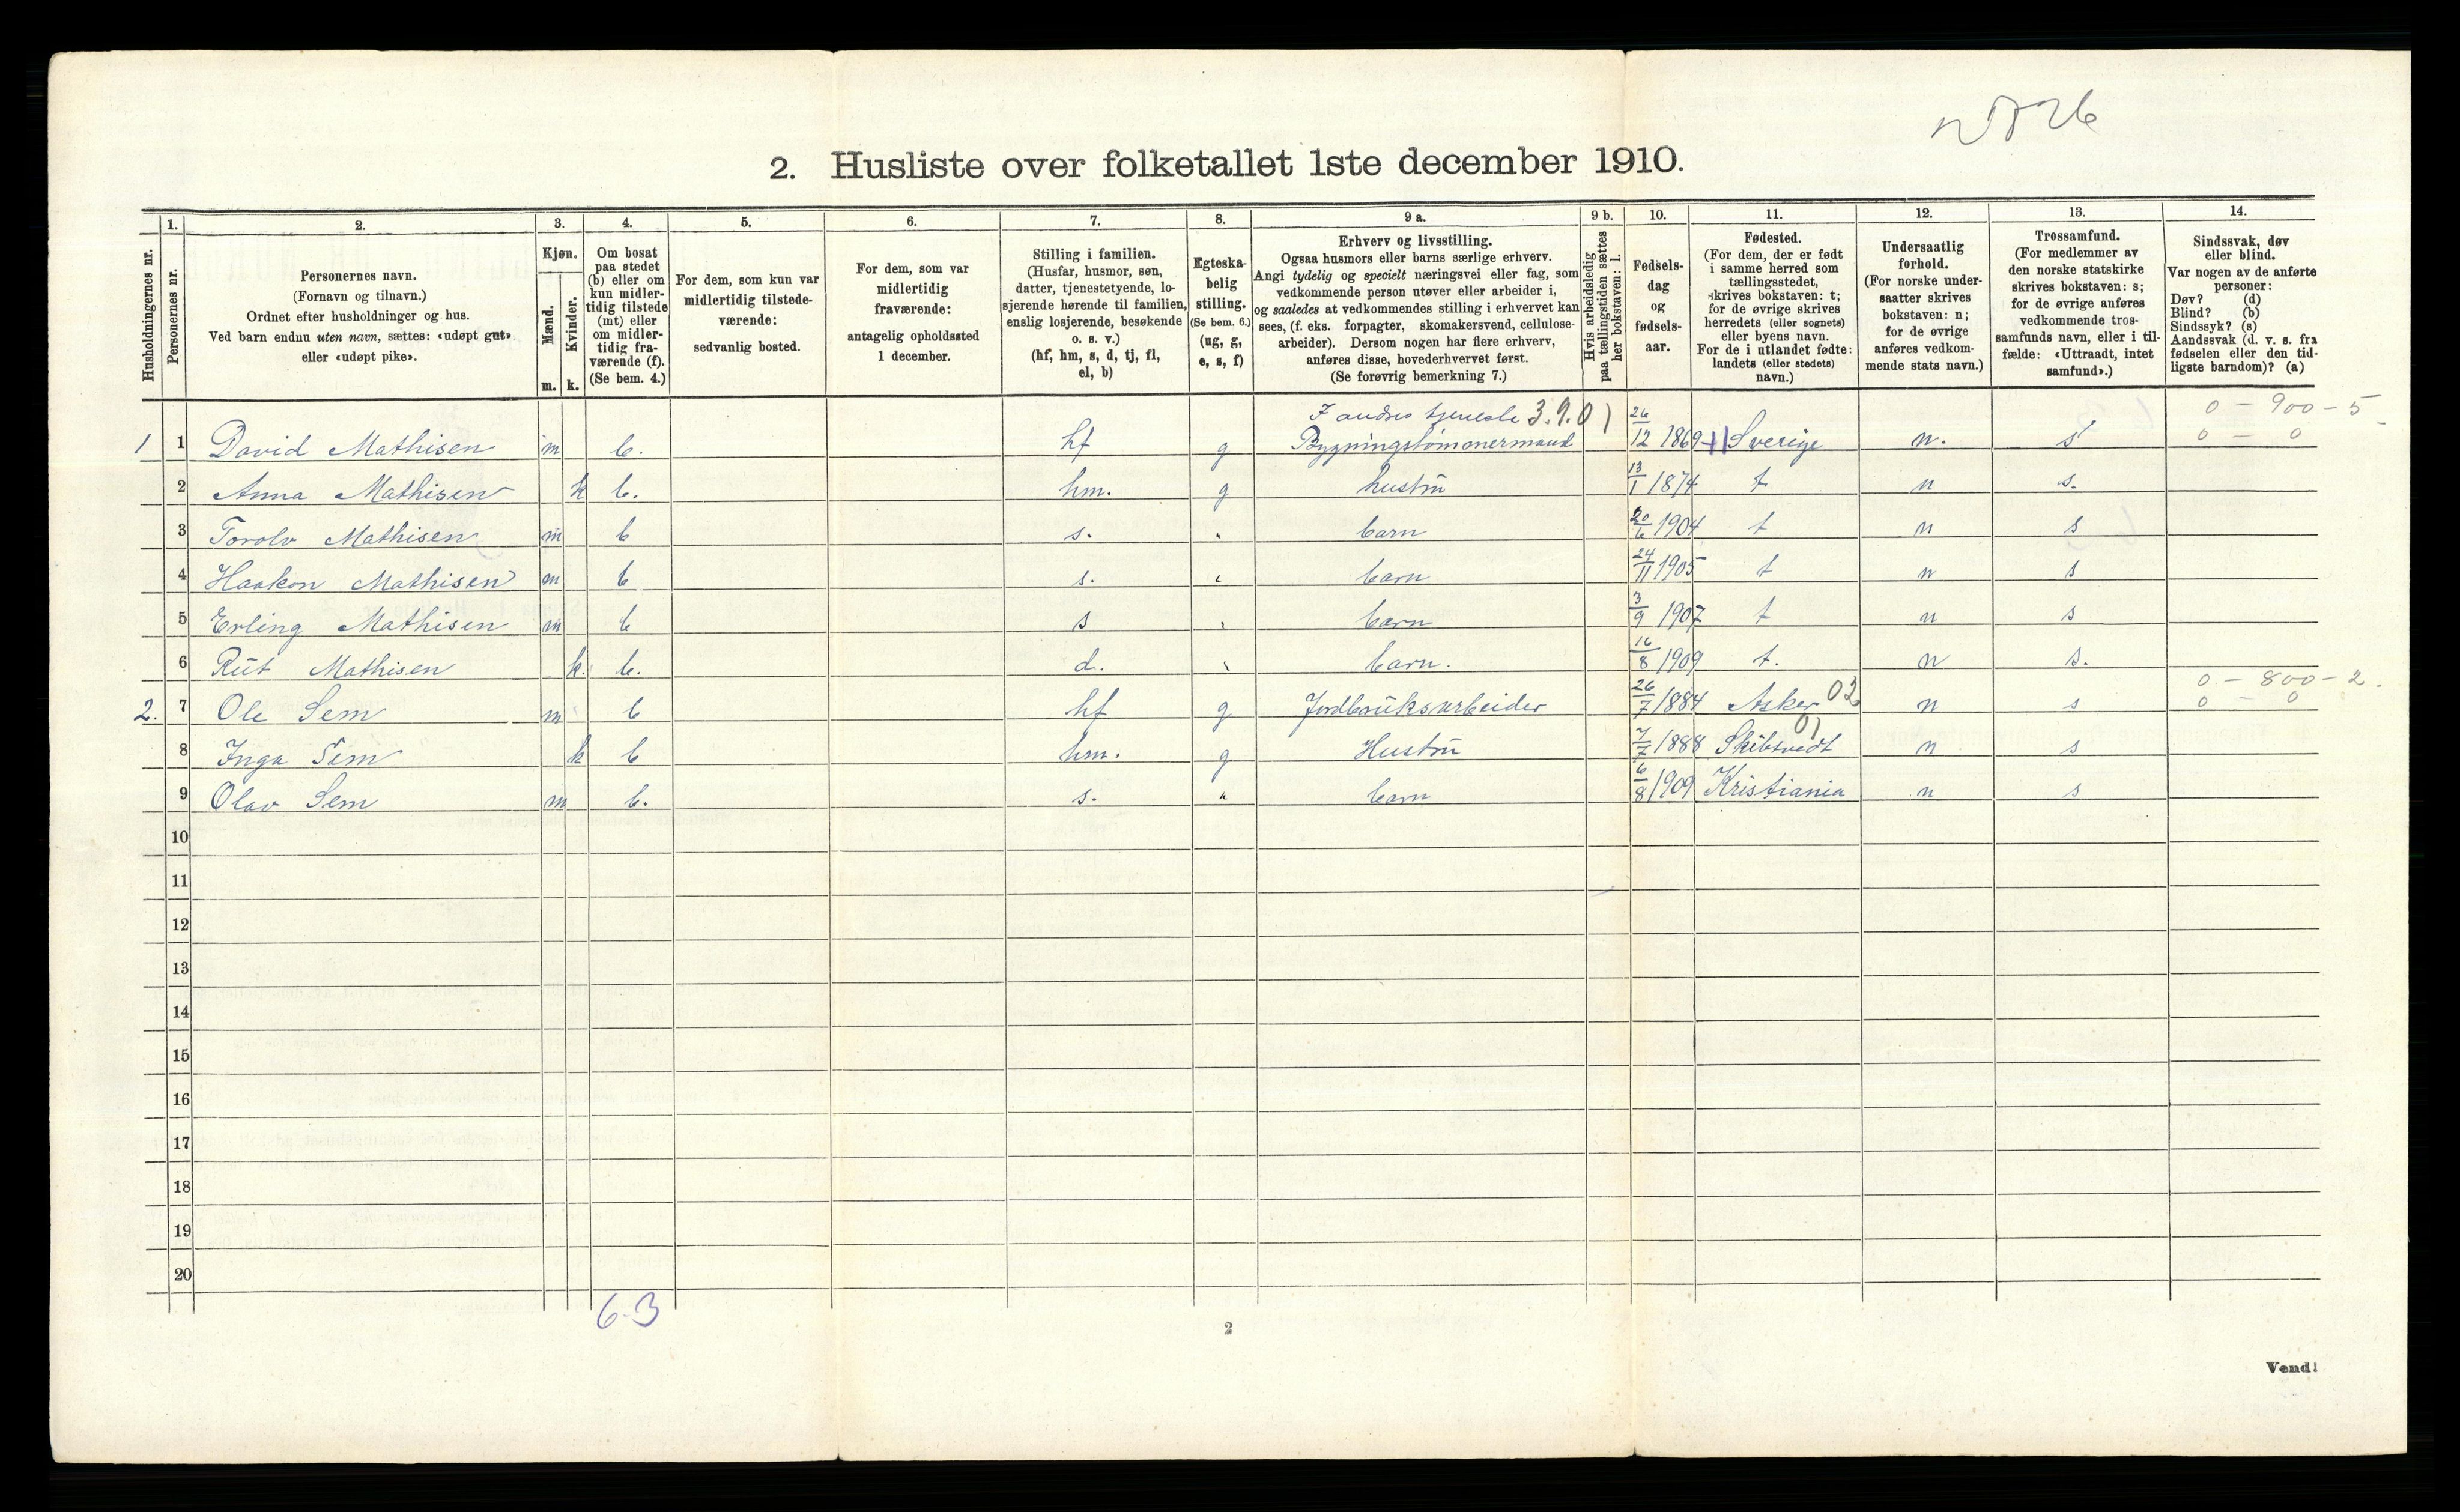 2. Husliste over folketallet 1ste december 1910.
Husholdningernes nr.
1.
Personernes nr.
2.
Personernes navn.
(Fornavn og tilnavn.)
Ordnet efter husholdninger og hus.
Ved barn endnu uten navn, sættes: «udøpt gut»
eller «udøpt pike».
3.
Kjøn.
Mænd.
Kvinder.
m. k.
4.
Om bosat
paa stedet
(b) eller om
kun midler-
tidig tilstede
(mt) eller
om midler-
tidig fra-
værende (f).
(Se bem. 4.)
5.
For dem, som kun var
midlertidig tilstede-
værende:
sedvanlig bosted.
6.
For dem, som var
midlertidig
fraværende:
antagelig opholdssted
1 december.
7.
Stilling i familien.
(Husfar, husmor, søn,
datter, tjenestetyende, lo-
sjerende hørende til familien,
enslig losjerende, besøkende
o. s. v.)
(hf, hm, s, d, tj, fl,
el, b)
8.
Egteska-
belig
stilling.
(Se bem. 6.)
(ug, g,
e, s, f)
9 a.
Erhverv og livsstilling.
Ogsaa husmors eller barns særlige erhverv.
Angi tydelig og specielt næringsvei eller fag, som
vedkommende person utøver eller arbeider i,
og saaledes at vedkommendes stilling i erhvervet kan
sees, (f. eks. forpagter, skomakersvend, cellulose-
arbeider). Dersom nogen har flere erhverv,
anføres disse, hovederhvervet først.
(Se forøvrig bemerkning 7.)
9 b.
Hvis arbeidsledig
paa tællingstiden sættes
her bokstaven: l.
10.
Fødsels-
dag
og
fødsels-
aar.
11.
Fødested.
(For dem, der er født
i samme herred som
tællingsstedet,
skrives bokstaven: t;
for de øvrige skrives
herredets (eller sognets)
eller byens navn.
For de i utlandet fødte:
landets (eller stedets)
navn.)
12.
Undersaatlig
forhold.
(For norske under-
saatter skrives
bokstaven: n;
for de øvrige
anføres vedkom-
mende stats navn.)
13.
Trossamfund.
(For medlemmer av
den norske statskirke
skrives bokstaven: s;
for de øvrige anføres
vedkommende tros-
samfunds navn, eller i til-
fælde: «Uttraadt, intet
samfund».)
14.
Sindssvak, døv
eller blind.
Var nogen av de anførte
personer:
Døv? (d)
Blind? (b)
Sindssyk? (s)
Aandssvak (d. v. s. fra
fødselen eller den tid-
ligste barndom)? (a)
I andres tjeneste 3.9.01 0 - 900 - 5
1 1 David Mathisen m b. hf g Bygningstømmermand 26/12 1869 Sverige n. s 0 - 0
2 Anna Mathisen k b. hm. g hustru 13/1 1874 t n s.
3 Torolv Mathisen m b s. " barn 20/6 1904 t n s
4 Haakon Mathisen m b s. " barn 24/11 1905 t n s
5 Erling Mathisen m b s " barn 3/9 1907 t n s
6 Rut Mathisen k. b. d. " barn. 16/8 1909 t. n s.
0 - 800 - 2.
2. 7 Ole Sem m b hf g Jordbruksarbeider 26/7 1884 Asker 02 n s 0 - 0
8 Inga Sem k b hm. g Hustru 7/7 1888 Skibtvedt 01 n s
9 Olav Sem m b. s. " barn 6/8 1909 Kristiania n s
10
11
12
13
14
15
16
17
18
19
20
6-3
2
Vend!